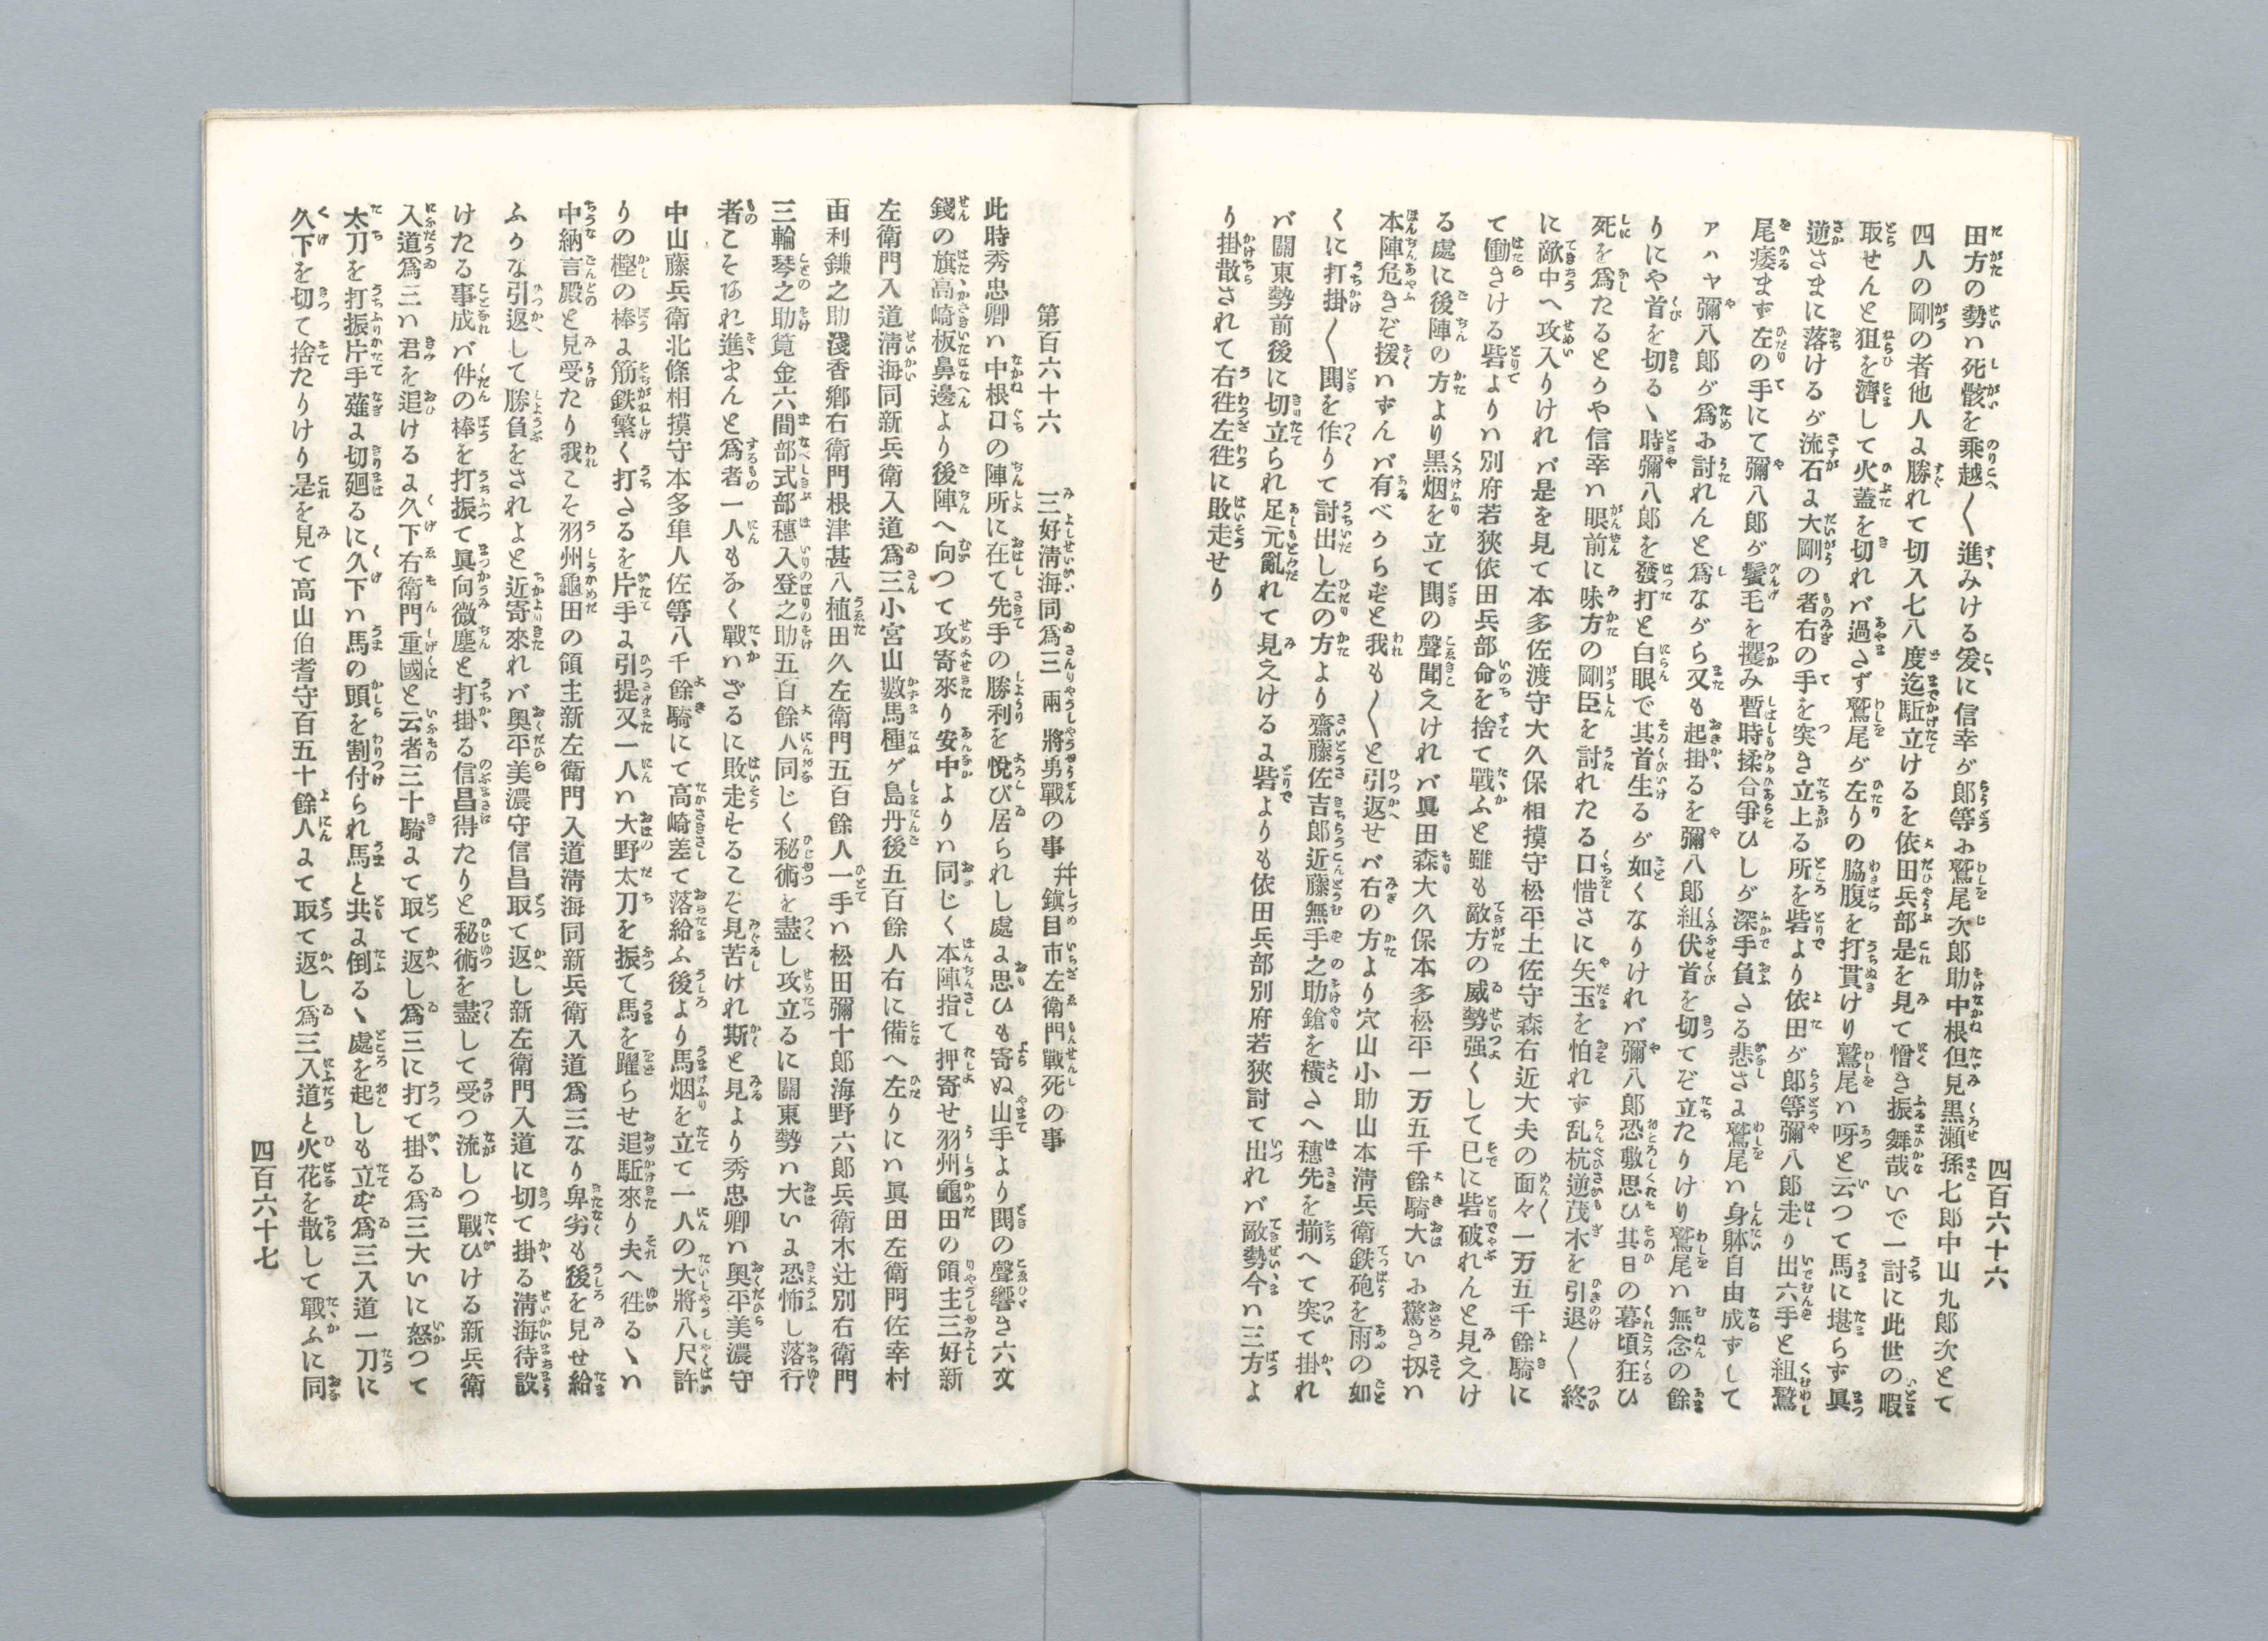 四百六十六
田方の勢ハ死骸を乗越〱進みける爰に信幸ガ郎等に鷲尾次郎助中根但見黒瀬孫七郎中山九郎次とて
四人の剛の者他人に勝れて切入七八度迄駈立けるを依田兵部是を見て憎き振舞哉いで一討に此世の暇
取せんと狙を濟して火蓋を切れバ過さず鷲尾ガ左りの脇腹を打貫けり鷲尾ハ呀と云つて馬に堪らず眞
逆さまに落けるガ流石に大剛の者右の手を突き立上る所を砦より依田ガ郎等彌八郎走り出六手と組鷲
尾痿まず左の手にて彌八郎ガ鬢毛を攫み暫時揉合爭ひしガ深手負さる悲さに鷲尾ハ身躰自由成ずして
アハヤ彌八郎ガ爲に討れんと爲ながら又も起掛るを彌八郎組伏首を切てぞ立たりけり鷲尾ハ無念の餘
りにや首を切るゝ時彌八郎を發打と白眼で其首生るガ如くなりけれバ彌八郎恐敷思ひ其日の暮頃狂ひ
死を爲たるとかや信幸ハ眼前に味方の剛臣を討れたる口惜さに矢玉を怕れず乱杭逆茂木を引退〱終
に敵中へ攻入りけれバ是を見て本多佐渡守大久保相摸守松平土佐守森右近大夫の面々一万五千餘騎に
て働きける砦よりハ別府若狹依田兵部命を捨て戰ふと雖も敵方の威勢强くして已に砦破れんと見えけ
る處に後陣の方より黒烟を立て鬨の聲聞えけれバ眞田森大久保本多松平一万五千餘騎大いに驚き扨ハ
本陣危きぞ援ハずんバ有べからずと我も〱と引返せバ右の方より穴山小助山本清兵衛鉄砲を雨の如
くに打掛〱鬨を作りて討出し左の方より齋藤佐吉郎近藤無手之助鎗を横たへ穗先を揃へて突て掛れ
バ關東勢前後に切立られ足元亂れて見えけるに砦よりも依田兵部別府若狹討て出れバ敵勢今ハ三方よ
り掛散されて右徃左徃に敗走せり
第百六十六　三好清海同爲三兩將勇戰の事并鎭目市左衛門戰死の事
此時秀忠卿ハ中根口の陣所に在て先手の勝利を悅び居られし處に思ひも寄ぬ山手より鬨の聲響き六文
錢の旗高崎板鼻邊より後陣へ向つて攻寄來り安中よりハ同じく本陣指て押寄せ羽州龜田の領主三好新
左衛門入道清海同新兵衛入道爲三小宮山數馬種ゲ島丹後五百餘人右に備へ左りにハ眞田左衛門佐幸村
由利鎌之助淺香郷右衛門根津甚八植田久左衛門五百餘人一手ハ松田彌十郎海野六郎兵衛木辻別右衛門
三輪琴之助筧金六間部式部穗入登之助五百餘人同じく秘術を盡し攻立るに關東勢ハ大いに恐怖し落行
者こそあれ進まんと爲者一人もなく戰ハざるに敗走するこそ見苦けれ斯と見より秀忠卿ハ奧平美濃守
中山藤兵衛北條相摸守本多隼人佐等八千餘騎にて高崎差て落給ふ後より馬烟を立て一人の大將八尺許
りの樫の棒に筋鉄繁く打さるを片手に引提又一人ハ大野太刀を振て馬を躍らせ追駈來り夫へ徃るゝハ
中納言殿と見受たり我こそ羽州龜田の領主新左衛門入道清海同新兵衛入道爲三なり卑劣も後を見せ給
ふかな引返して勝負をされよと近寄來れバ奧平美濃守信昌取て返し新左衛門入道に切て掛る清海待設
けたる事成れバ件の棒を打振て眞向微塵と打掛る信昌得たりと秘術を盡して受つ流しつ戰ひける新兵衛
入道爲三ハ君を追けるに久下右衛門重國と云者三十騎にて取て返し爲三に打て掛る爲三大いに怒つて
太刀を打振片手薙に切廻るに久下ハ馬の頭を割付られ馬と共に倒るゝ處を起しも立ず爲三入道一刀に
久下を切て捨たりけり是を見て高山伯耆守百五十餘人にて取て返し爲三入道と火花を散して戰ふに同
四百六十七